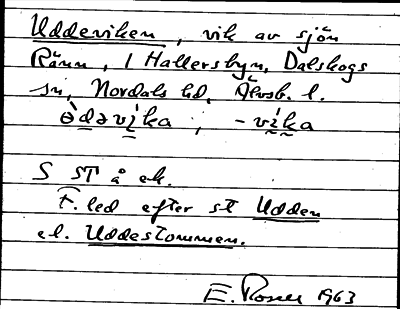 Uddeviken, vik av sjön
Ränn, i Hallersbyn, Dalskogs
sn, Nordals hd, Älvsb. l.
ə̀dəvi̱ka, -vi̱ka
S ST å ek.
F. led efter st Udden
el. Uddestommen.
E. Rosell 1963